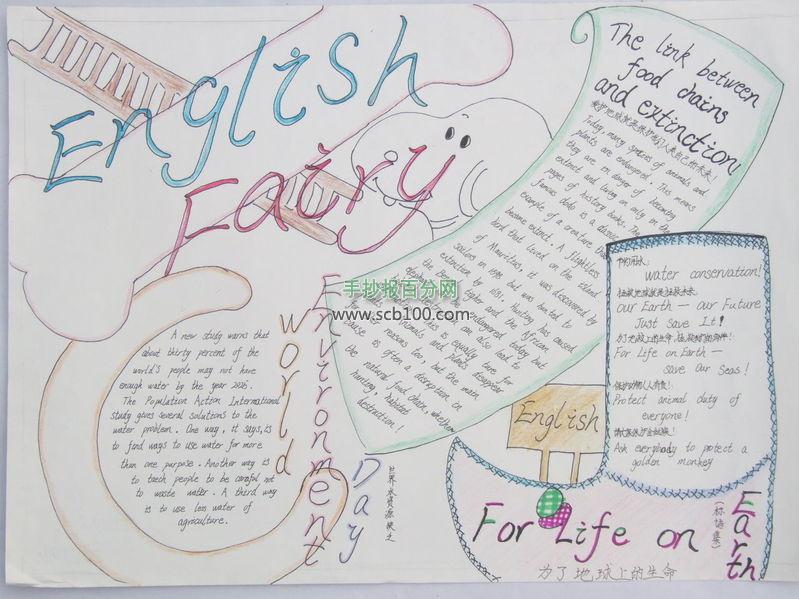 English
Fairy
The link between
food chains
and extinction
Today, many species of animals and
plants are endangered. This means
they are in danger of becoming
extinct and living on only in the
pages of history books. The
famous dodo is a classic
example of a creature that
became extinct. A flightless
bird that lived on the island
of Mauritius, it was discovered by
sailors in 1581 and was hunted to
extinction by 1681. Hunting has caused
the Bengal tiger and the African
endangered today but
can also lead to
is equally true for
animals and plants disappear
for other reasons too, but the main
cause is often a disruption in
the natural food chain, whether
hunting, habitat
destruction!
手抄报百分网
www.scb100.com
World
Environment
Day
A new study warns that
about thirty percent of the
world's people may not have
enough water by the year 2025.
The Population Action International
study gives several solutions to the
water problem. One way, it says, is
to find ways to use water for more
than one purpose. Another way is
to teach people to be careful not
to waste water. A third way
is to use less water of
agriculture.
节约用水
water conservation!
Our Earth — our Future
Just Save It!
For Life on Earth —
save Our Seas!
Protect animal duty of
everyone!
Ask everybody to protect a
golden monkey
English
For Life on
Earth
为了地球上的生命